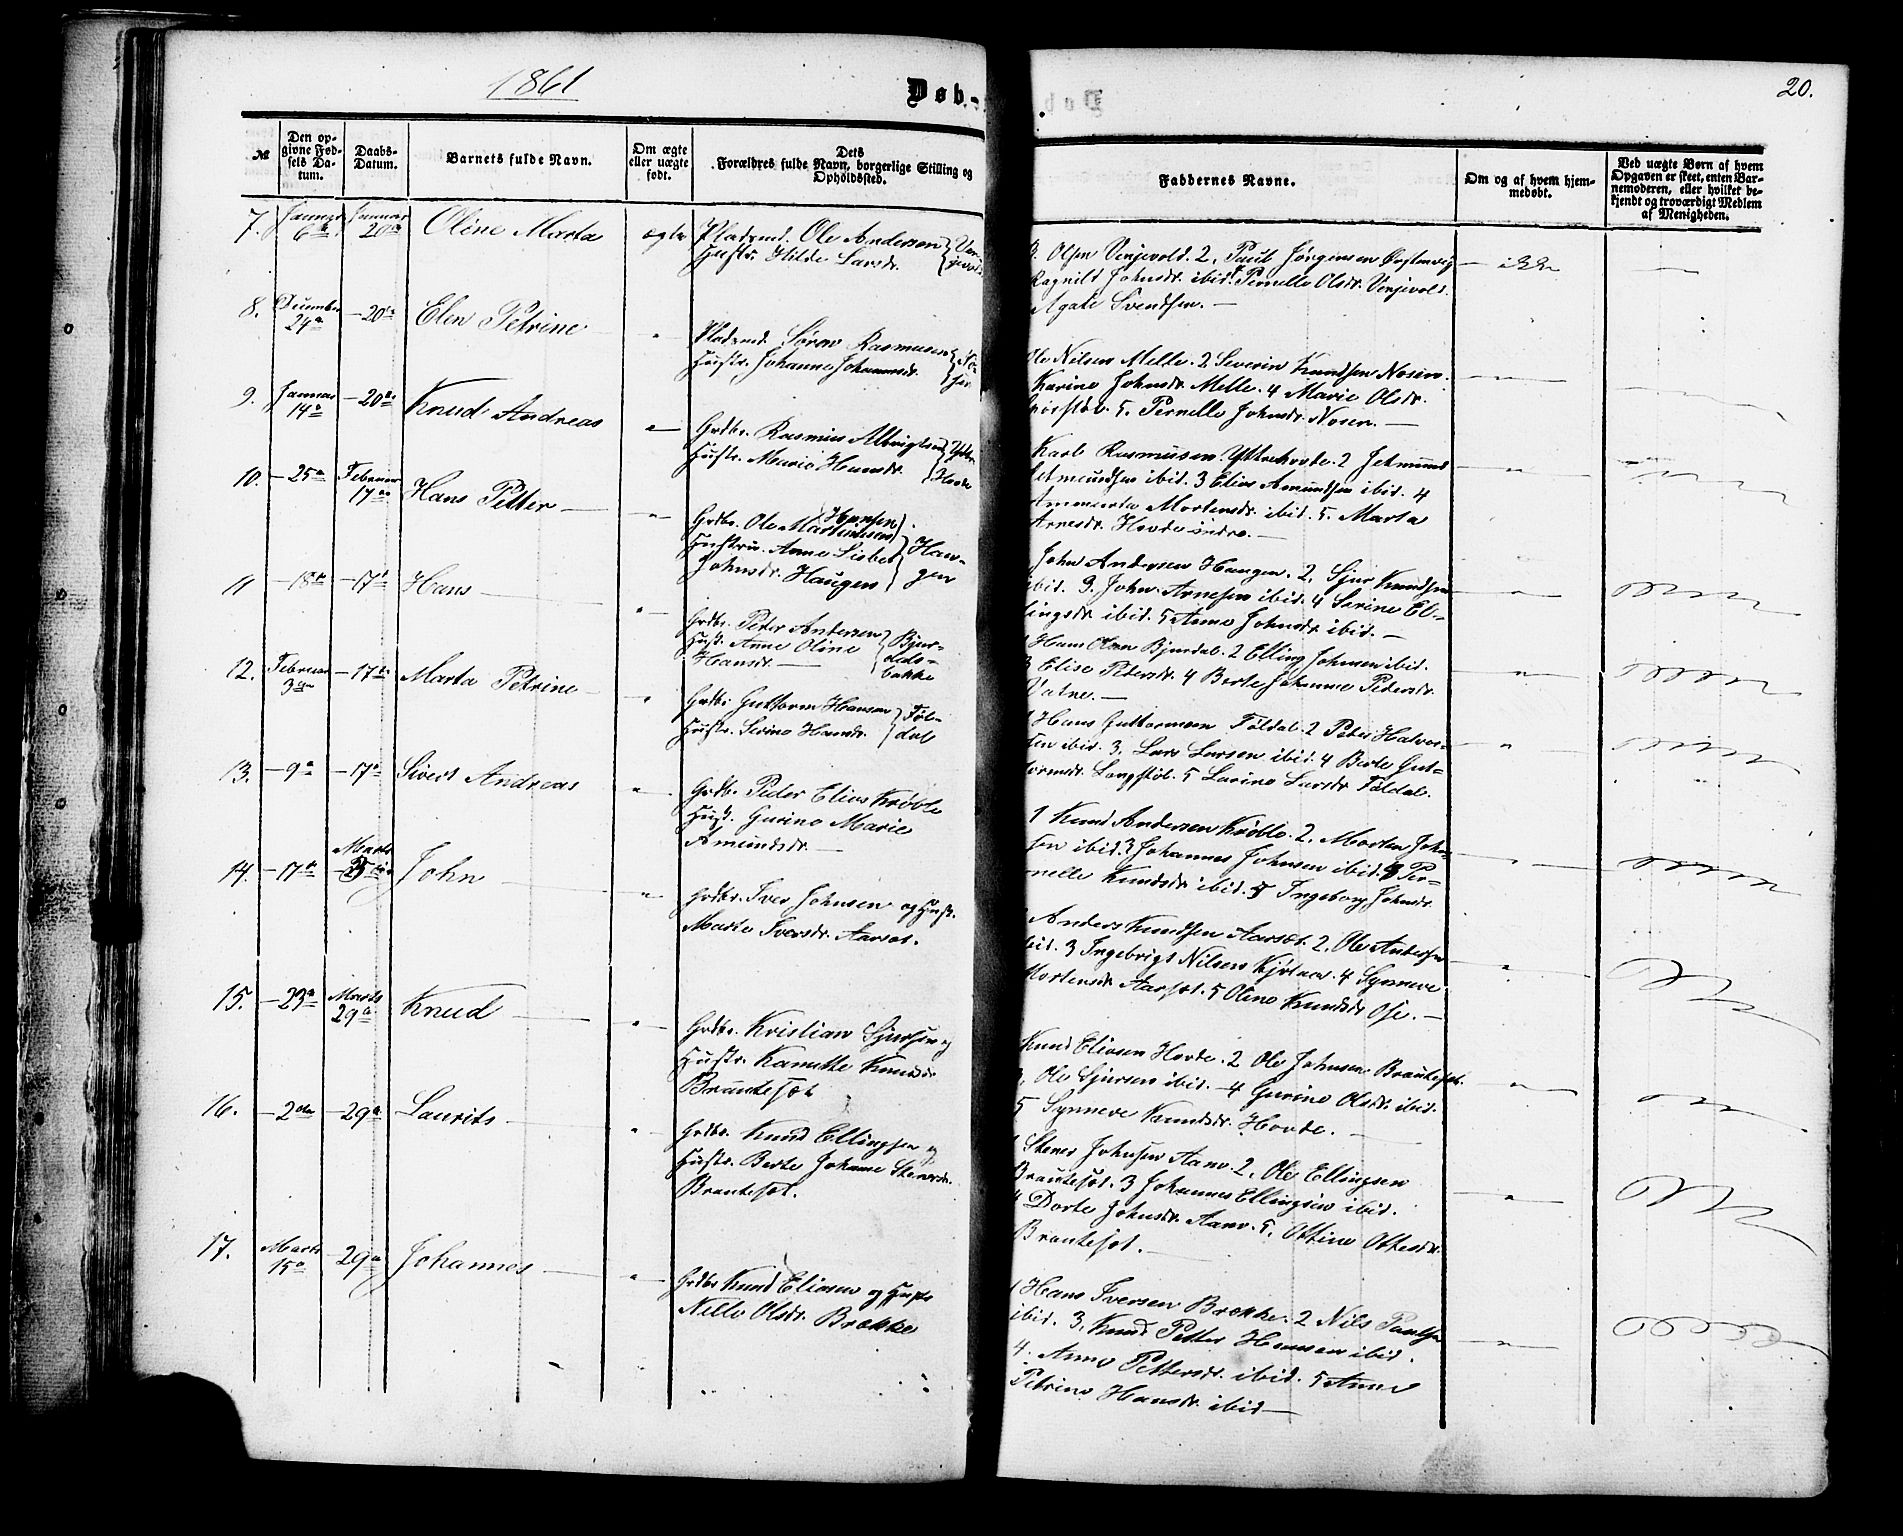 1861
Døb-
20.
№
Den op-
givne Fød-
sels Da-
tum.
Daabs-
Datum.
Barnets fulde Navn.
Om ægte
eller uægte
født.
Dets
Forældres fulde Navn, borgerlige Stilling og
Opholdssted.
Faddernes Navne.
Om og af hvem hjem-
medøbt.
Ved uægte Børn af hvem
Opgaven er skeet, enten Bar-
nemoderen, eller hvilket be-
kjendt og troværdigt Medlem
af Menigheden.
7. Januar Januar Oline Marta ægte Pladsmd. Ole Andersen
6te 20de Hustr. Hilde Larsdr.
3. Olsen Venjevold. 2. Paul Jørgensen
Ragnild Johnsdr. ibid. Pernelle Olsdr. Venjevold.
Agate Svendsen. —
ikke
8. December — 20de Elen Petrine
24de
Pladsmd. Søren Rasmusen
Hustr. Johanne Johannesdr.
Ole Nilsen Melle. 2 Severin Knudsen Nosen.
Karine Johnsdr. Melle. 4 Marie Olsdr.
5. Pernelle Johnsdr. Nosen. —
9. Januar — 20de Knud Andreas
14de
Grdbr. Rasmus Albrigtsen Ytre
Hustr. Marie Hansdr. Hovde
Karl Rasmusen Yttrehovde. 2 Jetmund
Jetmundsen ibid. 3 Elias Amundsen ibid. 4
Mortensdr. ibid. 5. Marta
Arnesdr. Hovde indre. —
10. — 25de Februar Hans Petter —
17de
Hansen
Grdbr. Ole Martinusen
Hustru. Anne Lisbet Hau-
Johnsdr. Haugen gen
John Andersen Haugen. 2. Sjur Knudsen
ibid. 3. John Arnesen ibid. 4 Serine El-
lingsdr. ibid. 5 Anne Johnsdr. ibid. —
11 — 18de — 17de Hans —
Grdbr. Peter Andersen Bjør-
Hust. Anne Oline dals-
Hansdr. — bakke
1 Hans Olsen Bjørdal. 2 Elling Johnsen ibid.
3 Elise Pedersdr. 4 Berte Johanne Pedersdr.
Vatne. —
12. Februar — 17de Marta Petrine —
3die
Grdbr. Guttorm Hansen Føl-
Hustr. Serine Hansdr. dal
1 Hans Guttormsen Føldal. 2 Peter Halvor-
sen ibid. 3. Lars Larsen ibid. 4 Berte Gut-
tormsdr. Langstøl. 5 Larine Larsdr. Føldal.
13. — 9de — 17de Sivert Andreas
Grdbr. Peder Elias Krøvle
Hust. Gurine Marie
Amundsdr. —
1 Knud Andersen Krøvle. 2. Morten John-
sen ibid. 3 Johannes Johnsen ibid. 4 Per-
nelle Knudsdr. ibid. 5 Ingeborg Johnsdr.
14. — 17de Marts John —
Grdbr. Iver Johnsen og Hust.
Marte Iversdr. Aarset.
1 Anders Knudsen Aarset. 2. Ole Andersen
ibid. 3 Ingebrigt Nilsen 4 Synneve
Mortensdr. Aarset. 5 Oline Knudsdr. Ose. —
15. — 23de Marts Knud —
29de
Grdbr. Kristian Sjursen og
Hustr. Kanutte Knudsdr.
Brautesæt
Knud Eliasen Hovde. 2 Ole Johnsen Brautesæt.
3. Ole Sjursen ibid. — 4 Gurine Olsdr. ibid.
5 Synneve Knudsdr. Hovde. —
16. — 2den — 29de Laurits —
Grdbr. Knud Ellingsen og
Hustr. Berte Johanne Stenersdr.
Brautesæt.
1 Stener Johnsen Aam. 2. Ole Ellingsen
Brautesæt. 3 Johannes Ellingsen ibid.
4 Dorte Johnsdr. Aam. 5. Ottine Ottesdr.
Brautesæt. —
17. Marts 29de Johannes —
15de
Grdbr Knud Eliasen og Hustr
Nille Olsdr. Brække
1 Hans Iversen Brække. 2 Nils Paulsen
ibid. 3. Knud Petter Hansen ibid.
4. Anne Pettersdr. ibid. 5 Anne
Petrine Hansdr. ibid —